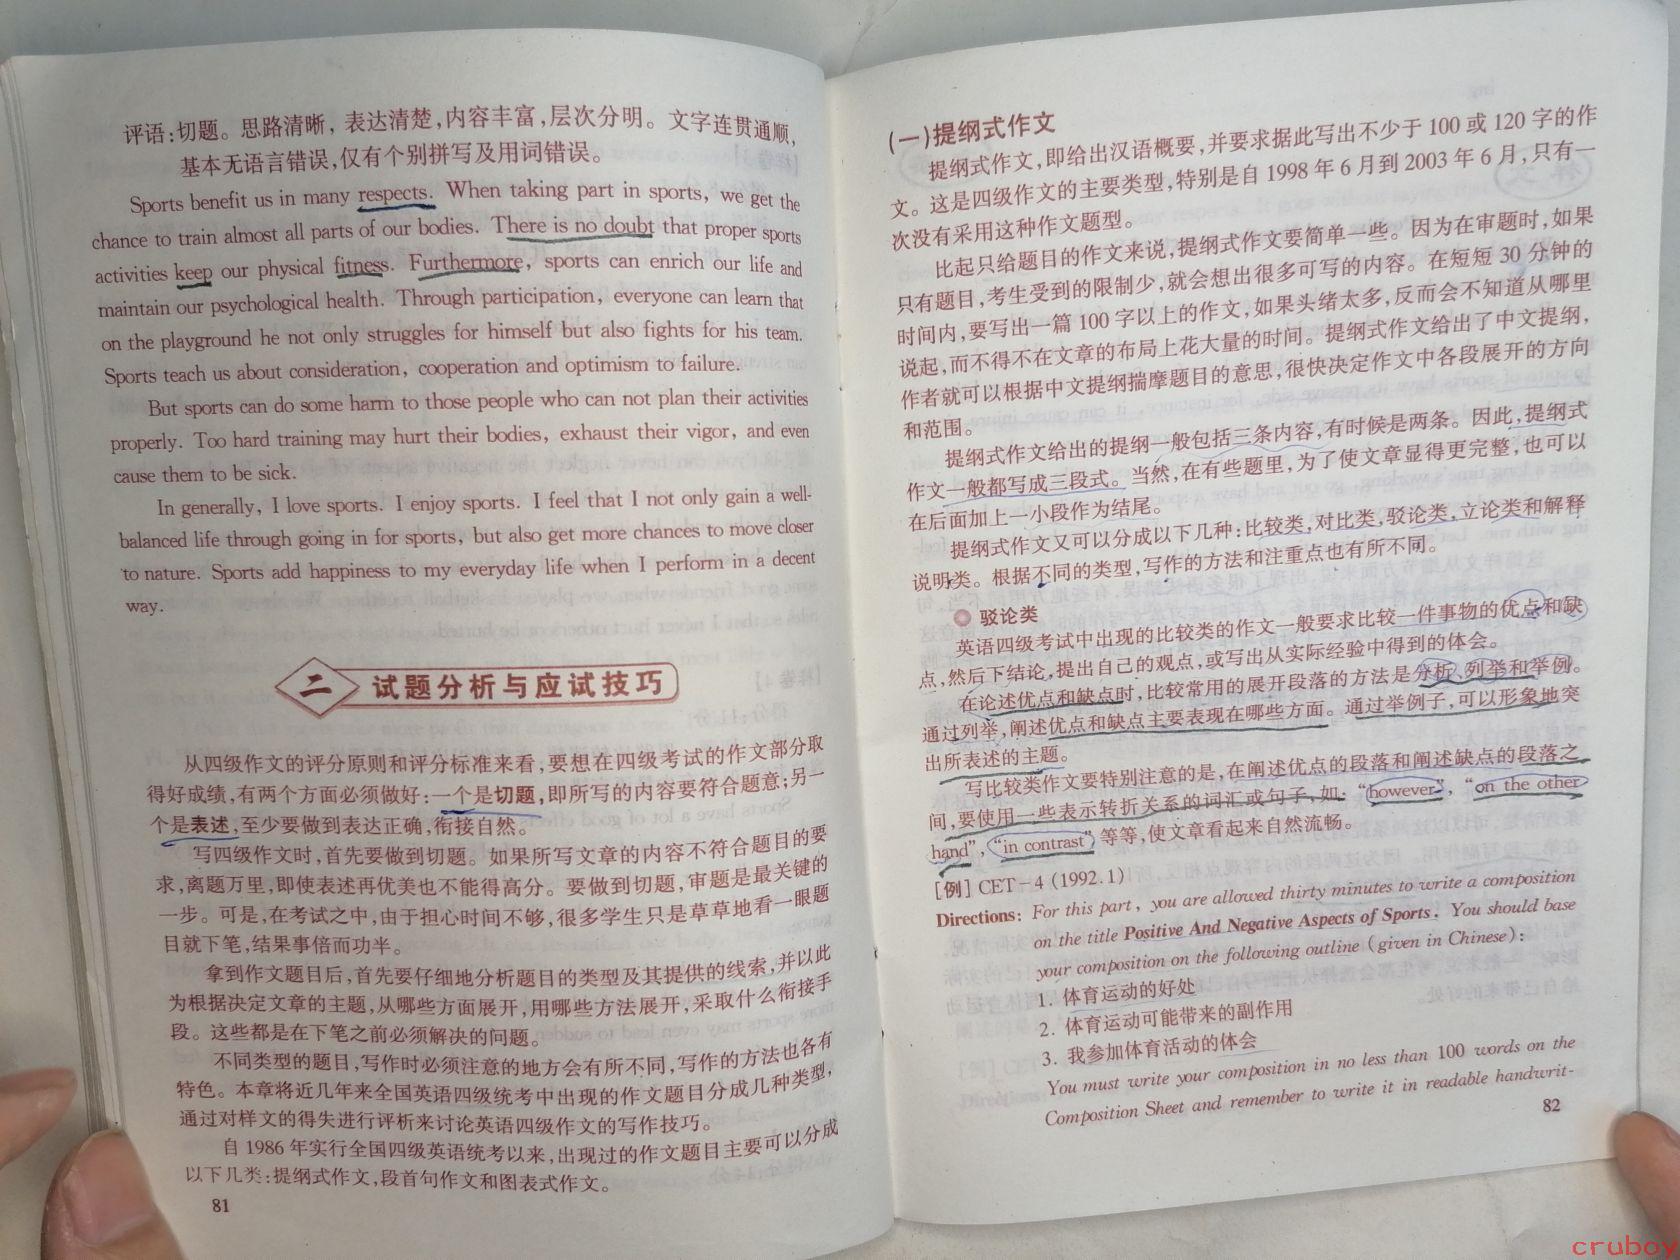 评语:切题。思路清晰,表达清楚,内容丰富,层次分明。文字连贯通顺,
基本无语言错误,仅有个别拼写及用词错误。
Sports benefit us in many respects. When taking part in sports, we get the
chance to train almost all parts of our bodies. There is no doubt that proper sports
activities keep our physical fitness. Furthermore, sports can enrich our life and
maintain our psychological health. Through participation, everyone can learn that
on the playground he not only struggles for himself but also fights for his team.
Sports teach us about consideration, cooperation and optimism to failure.
But sports can do some harm to those people who can not plan their activities
properly. Too hard training may hurt their bodies, exhaust their vigor, and even
cause them to be sick.
In generally, I love sports. I enjoy sports. I feel that I not only gain a well-
balanced life through going in for sports, but also get more chances to move closer
to nature. Sports add happiness to my everyday life when I perform in a decent
way.
二 试题分析与应试技巧
从四级作文的评分原则和评分标准来看,要想在四级考试的作文部分取
得好成绩,有两个方面必须做好:一个是切题,即所写的内容要符合题意;另一
个是表述,至少要做到表达正确,衔接自然。
写四级作文时,首先要做到切题。如果所写文章的内容不符合题目的要
求,离题万里,即使表述再优美也不能得高分。要做到切题,审题是最关键的
一步。可是,在考试之中,由于担心时间不够,很多学生只是草草地看一眼题
目就下笔,结果事倍而功半。
拿到作文题目后,首先要仔细地分析题目的类型及其提供的线索,并以此
为根据决定文章的主题,从哪些方面展开,用哪些方法展开,采取什么衔接手
段。这些都是在下笔之前必须解决的问题。
不同类型的题目,写作时必须注意的地方会有所不同,写作的方法也各有
特色。本章将近几年来全国英语四级统考中出现的作文题目分成几种类型,
通过对样文的得失进行评析来讨论英语四级作文的写作技巧。
自 1986 年实行全国四级英语统考以来,出现过的作文题目主要可以分成
以下几类:提纲式作文,段首句作文和图表式作文。
81
(一)提纲式作文
提纲式作文,即给出汉语概要,并要求据此写出不少于 100 或 120 字的作
文。这是四级作文的主要类型,特别是自 1998 年 6 月到 2003 年 6 月,只有一
次没有采用这种作文题型。
比起只给题目的作文来说,提纲式作文要简单一些。因为在审题时,如果
只有题目,考生受到的限制少,就会想出很多可写的内容。在短短 30 分钟的
时间内,要写出一篇 100 字以上的作文,如果头绪太多,反而会不知道从哪里
说起,而不得不在文章的布局上花大量的时间。提纲式作文给出了中文提纲,
作者就可以根据中文提纲揣摩题目的意思,很快决定作文中各段展开的方向
和范围。
提纲式作文给出的提纲一般包括三条内容,有时候是两条。因此,提纲式
作文一般都写成三段式。当然,在有些题里,为了使文章显得更完整,也可以
在后面加上一小段作为结尾。
提纲式作文又可以分成以下几种:比较类,对比类,驳论类,立论类和解释
说明类。根据不同的类型,写作的方法和注重点也有所不同。
驳论类
英语四级考试中出现的比较类的作文一般要求比较一件事物的优点和缺
点,然后下结论,提出自己的观点,或写出从实际经验中得到的体会。
在论述优点和缺点时,比较常用的展开段落的方法是分析、列举和举例。
通过列举,阐述优点和缺点主要表现在哪些方面。通过举例子,可以形象地突
出所表述的主题。
写比较类作文要特别注意的是,在阐述优点的段落和阐述缺点的段落之
间,要使用一些表示转折关系的词汇或句子,如:“however”, “on the other
hand”, “in contrast”等等,使文章看起来自然流畅。
[例] CET-4 (1992.1)
Directions: For this part, you are allowed thirty minutes to write a composition
on the title Positive And Negative Aspects of Sports. You should base
your composition on the following outline (given in Chinese):
1. 体育运动的好处
2. 体育运动可能带来的副作用
3. 我参加体育活动的体会
You must write your composition in no less than 100 words on the
Composition Sheet and remember to write it in readable handwrit-
82
cruboy